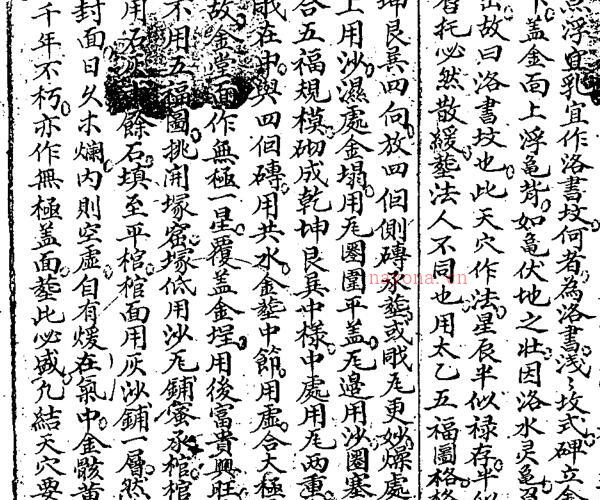 浮宜乳宜作洛書坟何者為洛書淺〻坟式碑立
下盖金面上浮龟背如龟伏地之壮因洛水灵龟
出故曰洛書坟也此天穴作法星辰半似禄存半
皆托必然散緩塟法人不同也用太乙五福圖格
坤艮巽四向放四佪側磚外塟或戝瓦更妙燥處
上用沙濕處金塌用瓦圈圍平盖瓦邉用沙圈塞
合五福規模砌成乾坤艮巽中樣中處用瓦两重
戝在中與四佪磚用共水金塟中節用虚合大極
故金堂面作無極一星覆盖金埕用後富貴興旺
不用五福圖挑開塚窑塚低用沙瓦鋪蜜承棺棺
用石灰 餘石填至平棺棺面用灰沙鋪一層然
封面日乆木爛内則空虚自有煖在氣中金骸黄
千年不朽亦作無極盖面塟此必盛九結天穴要
nayona.vn